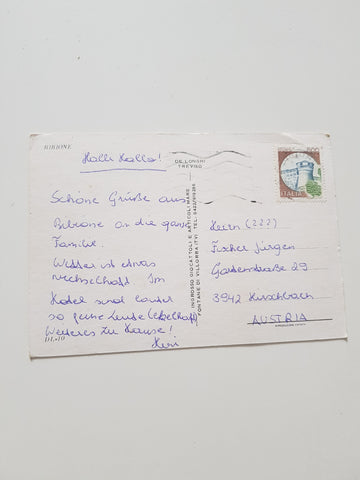 BIBIONE
Halli Hallo!
Schöne Grüße aus
Bibione an die ganze
Familie.
Wetter ist etwas
wechselhaft. Im
Hotel sind lauter
so feine Leute (ekelhaft)
Weiteres zu Hause!
Heri
DL-10
DE.LONGHI
TREVISO
INGROSSO GIOCATTOLI E ARTICOLI MARE
FONTANE DI VILLORBA (TV)
500
ITALIA
Herrn (???)
Fischer Jürgen
Gartenstraße 29
3942 Hirschbach
AUSTRIA